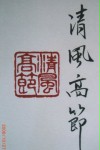 清風高節
清風
高節